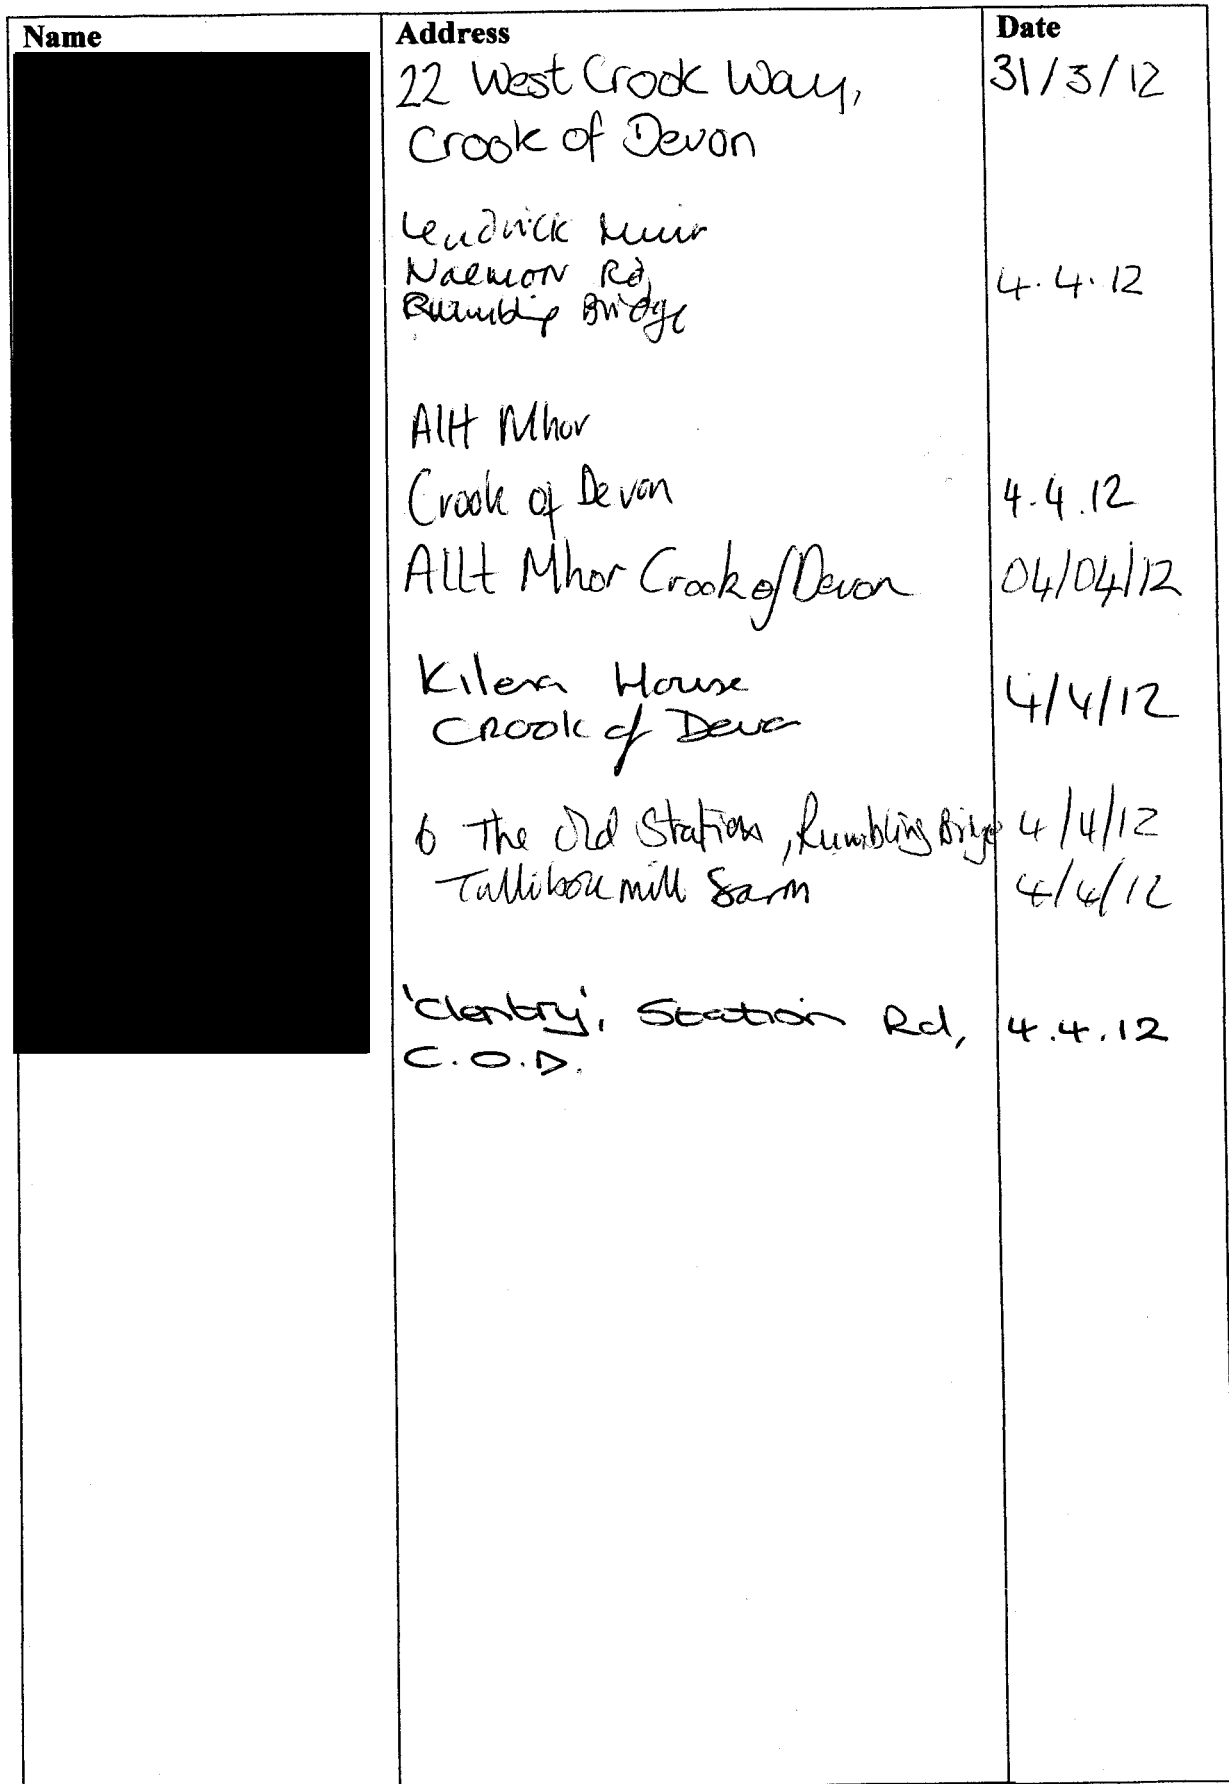 Name Address Date
22 West Crook Way, 31/3/12
Crook of Devon
Lendrick Muir
Naemoor Rd, 4.4.12
Rumbling Bridge
Allt Mhor
Crook of Devon 4.4.12
Allt Mhor Crook of Devon 04/04/12
House 4/4/12
Crook of Devon
6 The Old Station, Rumbling Bridge 4/4/12
mill Farm 4/4/12
'Clentry', Station Rd, 4.4.12
C.O.D.